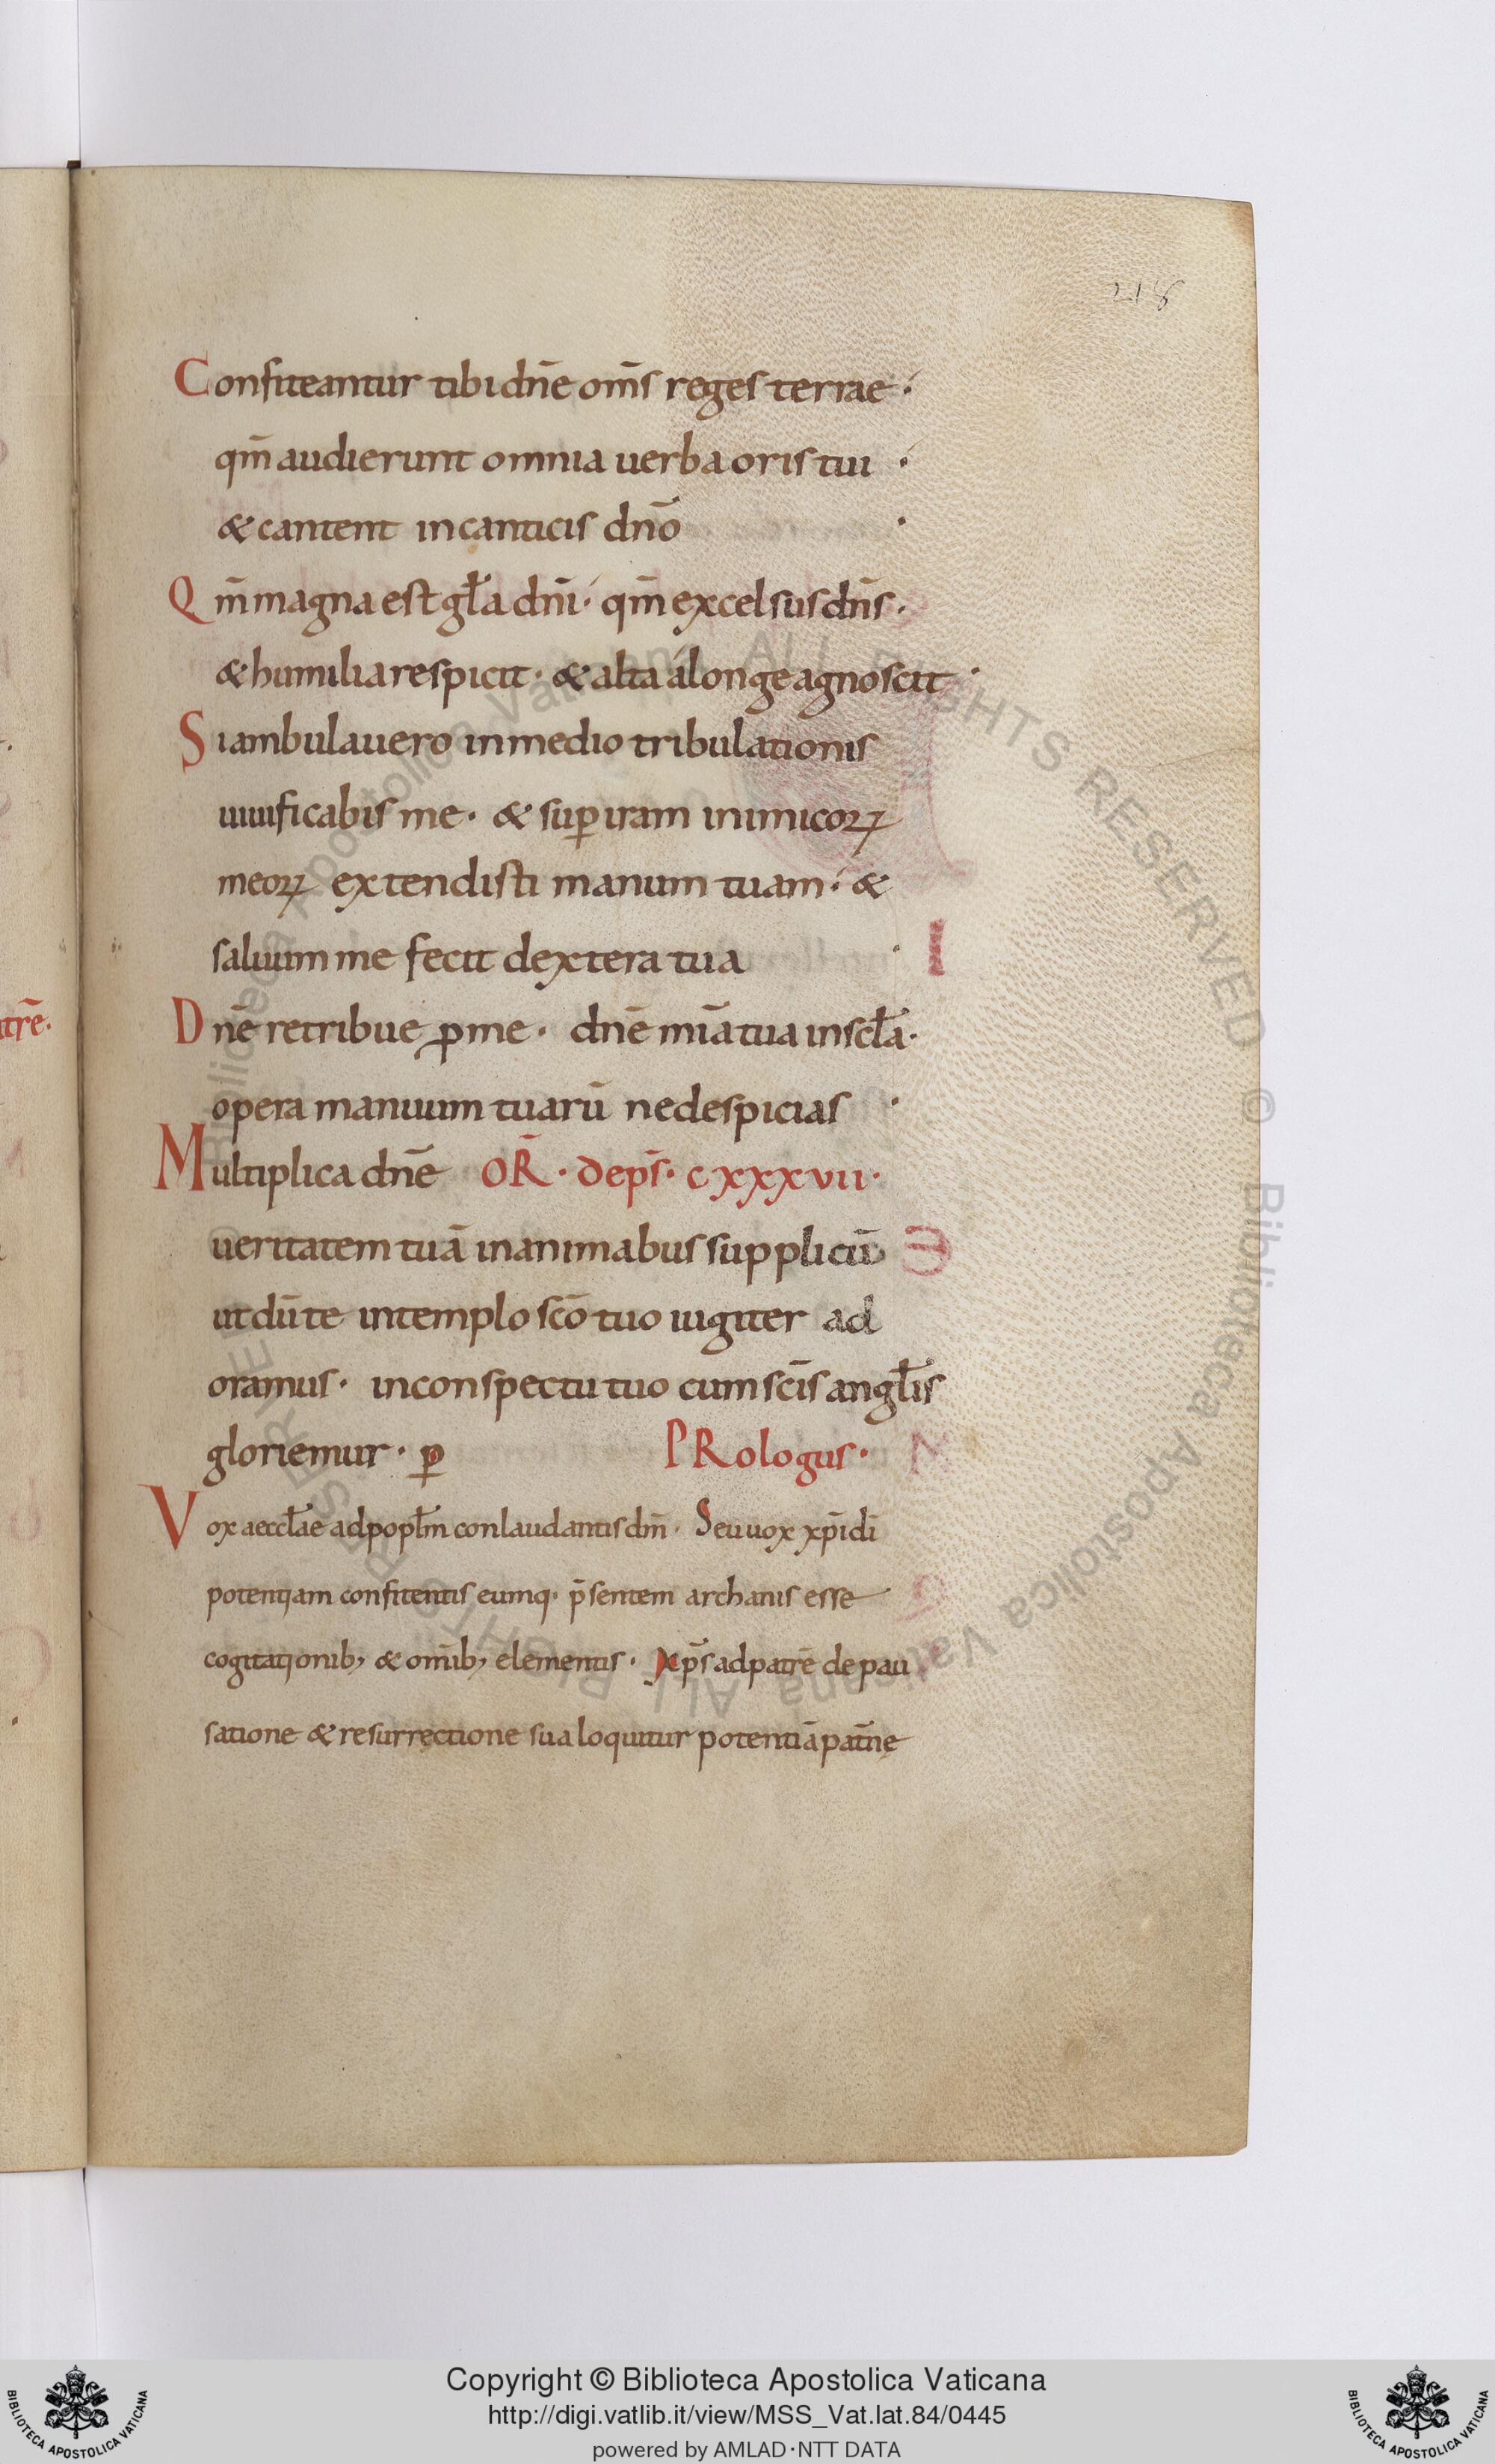 218
Confiteantur tibi dn̄e om̄s reges terrae·
qm̄ audierunt omnia uerba oris tui ·
& cantent in canticis dn̄o ·
Qm̄ magna est gl̄a dn̄i· qm̄ excelsus dn̄s·
& humilia respicit· & alta álonge agnoscit·
Si ambulauero in medio tribulationis
uiuificabis me· & sup̄ iram inimicoꝝ
meoꝝ extendisti manum tuam· &
saluum me fecit dextera tua ·
Dn̄e retribue ꝓ me· dn̄e mīa tua in scl̄a·
opera manuum tuarū ne despicias ·
Multiplica dn̄e OR̄· de ps̄· cxxxvii·
ueritatem tuā in animabus supplicū
ut dū te in templo scō tuo iugiter ad
oramus· in conspectu tuo cum scīs angl̄is
gloriemur· p̄ PRologus·
Vox aeccl̄ae ad popl̄m conlaudantis dm̄· Seu uox xp̄i di
potentiam confitentis eumq· p̄sentem archanis esse
cogitationib; & om̄ib; elementis· xp̄s ad patrē de pau
satione & resurrectione sua loquitur potentiā patn̄ę
atrē·
Copyright © Biblioteca Apostolica Vaticana
http://digi.vatlib.it/view/MSS_Vat.lat.84/0445
powered by AMLAD·NTT DATA
BIBLIOTECA APOSTOLICA VATICANA
BIBLIOTECA APOSTOLICA VATICANA